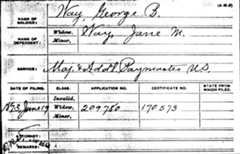 NAME OF SOLDIER: Way, George B.
NAME OF DEPENDENT: Widow, Way, Jane M.
Minor,
SERVICE: Maj. & Addl. Paymaster U.S.
DATE OF FILING. CLASS. APPLICATION NO. CERTIFICATE NO. STATE FROM WHICH FILED.
Invalid,
June 19 Widow, 209780 170573
Minor,
ATTORNEY:
REMARKS: